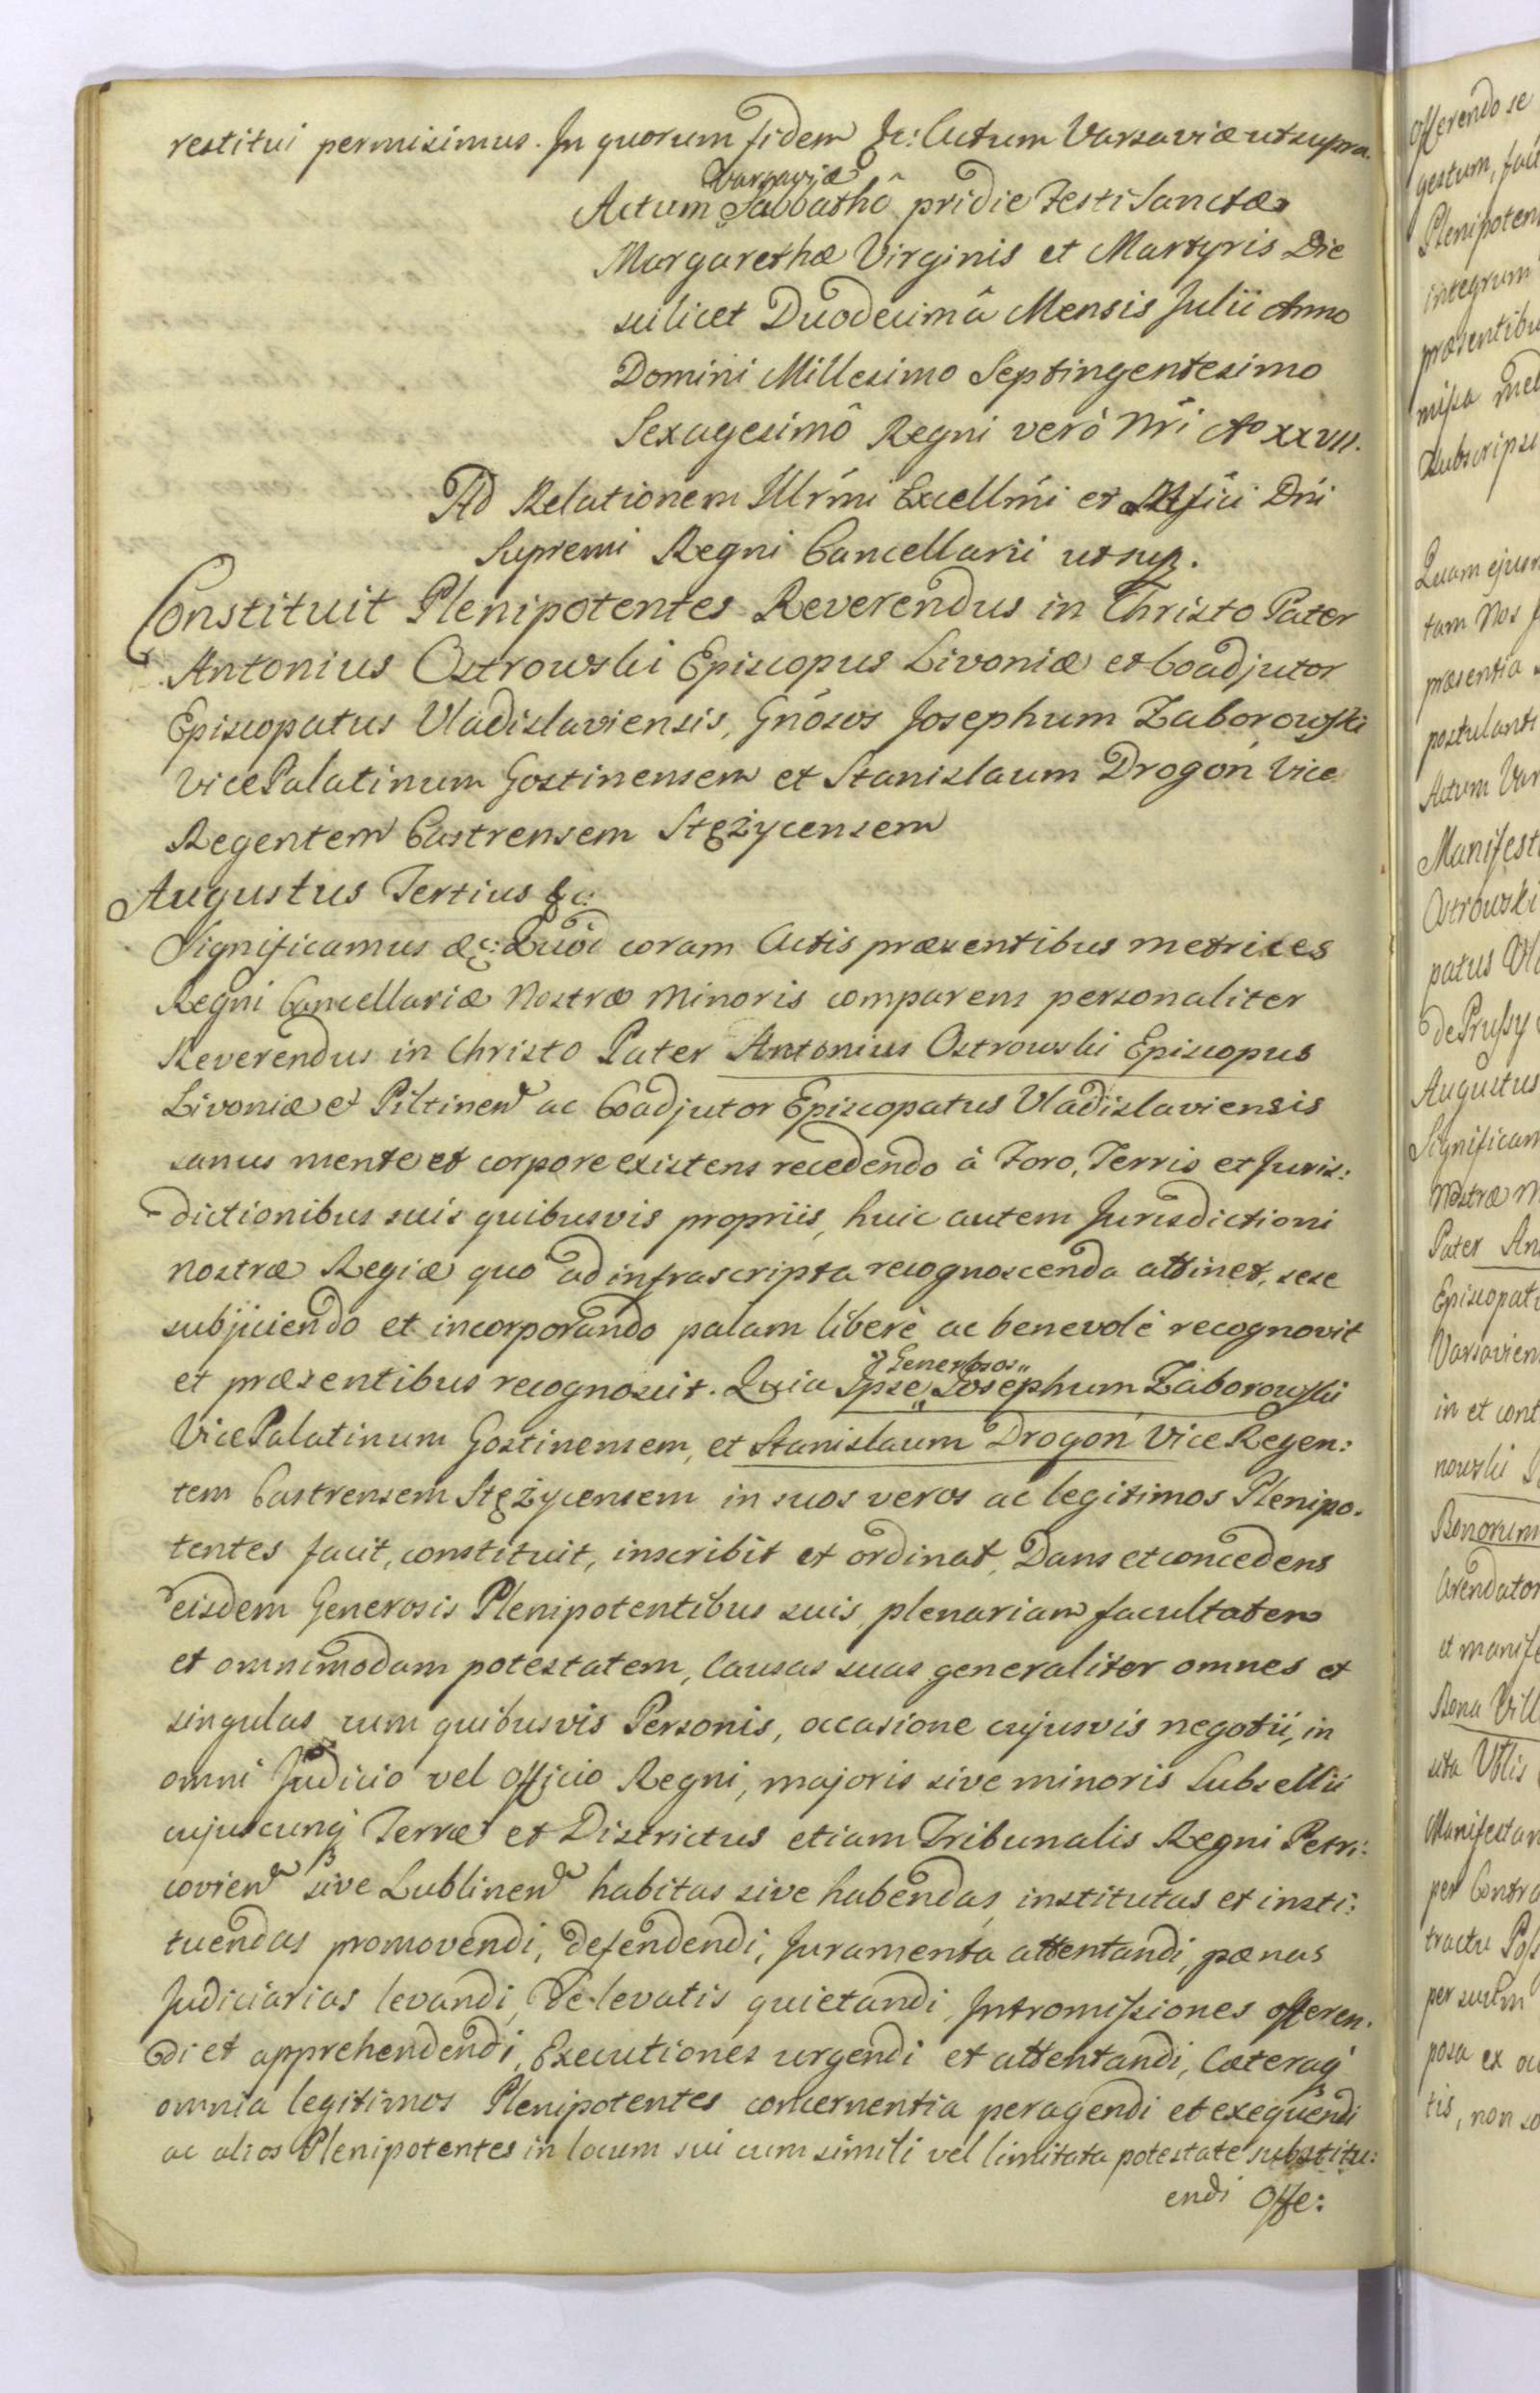 restitui permisimus. In quorum fidem &c: Actum Varsaviæ ut supra.
Varsaviæ
Actum Sabbathô pridie Festi Sanctæ
Margarethæ Virginis et Martyris Die
scilicet Duodecimâ Mensis Julii Anno
Domini Millesimo Septingentesimo
Sexagesimô Regni verò Nri Ao XXVII.
Ad Relationem Illrmi Excellmi et Mfici Dni
Supremi Regni Cancellarii ut sup.
Constituit Plenipotentes Reverendus in Christo Pater
Antonius Ostrowski Episcopus Livoniæ et Coadjutor
Episcopatus Vladislaviensis, Gnosos Josephum Zaborowski
Vice Palatinum Gostinensem et Stanislaum Drogoń Vice
Regentem Castrensem Stężycensem
Augustus Tertius &c:
Significamus &c: Quòd coram Actis præsentibus metrices
Regni Cancellariæ Nostræ Minoris comparens personaliter
Reverendus in Christo Pater Antonius Ostrowski Episcopus
Livoniæ et Piltinen ac Coadjutor Episcopatus Vladislaviensis
sanus mente et corpore existens recedendo à Foro, Terris et Juris:
dictionibus suis quibusvis propriis, huic autem Jurisdictioni
nostræ Regiæ quo ad infrascripta recognoscenda attinet, sese
subjiciendo et incorporando palam liberè ac benevolè recognovit
et præsentibus recognoscit. Quia Ipse Josephum Zaborowski
Generosos
Vice Palatinum Gostinensem, et Stanislaum Drogoń Vice Regen:
tem Castrensem Stężycensem in suos veros ac legitimos Plenipo.
tentes facit, constituit, inscribit et ordinat, Dans et concedens
eisdem Generosis Plenipotentibus suis plenariam facultatem
et omnimodam potestatem, Causas suas generaliter omnes et
singulas cum quibusvis Personis, occasione cujusvis negotii, in
omni Judicio vel Officio Regni, majoris sive minoris Subsellii
cujuscunq Terræ et Districtus etiam Tribunalis Regni Petri:
covien sive Lublinen habitas sive habendas institutas et insti:
tuendas promovendi, defendendi, Juramenta attentandi, pænas
Judiciarias levandi, de levatis quietandi Intromissiones offeren.
di et apprehendendi, Executiones urgendi et attentandi, Cæteraq
omnia legitimos Plenipotentes concernentia peragendi et exequendi
ac alios Plenipotentes in locum sui cum simili vel limitata potestate substitu:
endi Offe:
Offerendo se
gestum,
Plenipoten
integrum
præsentibu
missa
Subscripsi
Quam ejus
tam Nos
præsentia
postulant
Actum Var
Manifest
Ostrowski
patus Vl
de Prussy
Augustus
Significam
Nostræ M
Pater An
Episcopat
Varsavien
in et cont
nowski
Bonorum
Arendator
et manife
Bona Vill
sita
Manifestan
per Contra
tractu Pos
per
posa ex
tis, non so